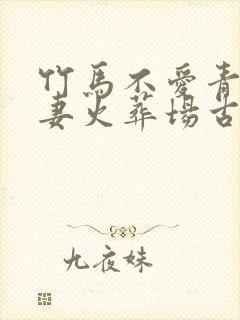 竹馬不愛青
妻火葬場古
九夜妹